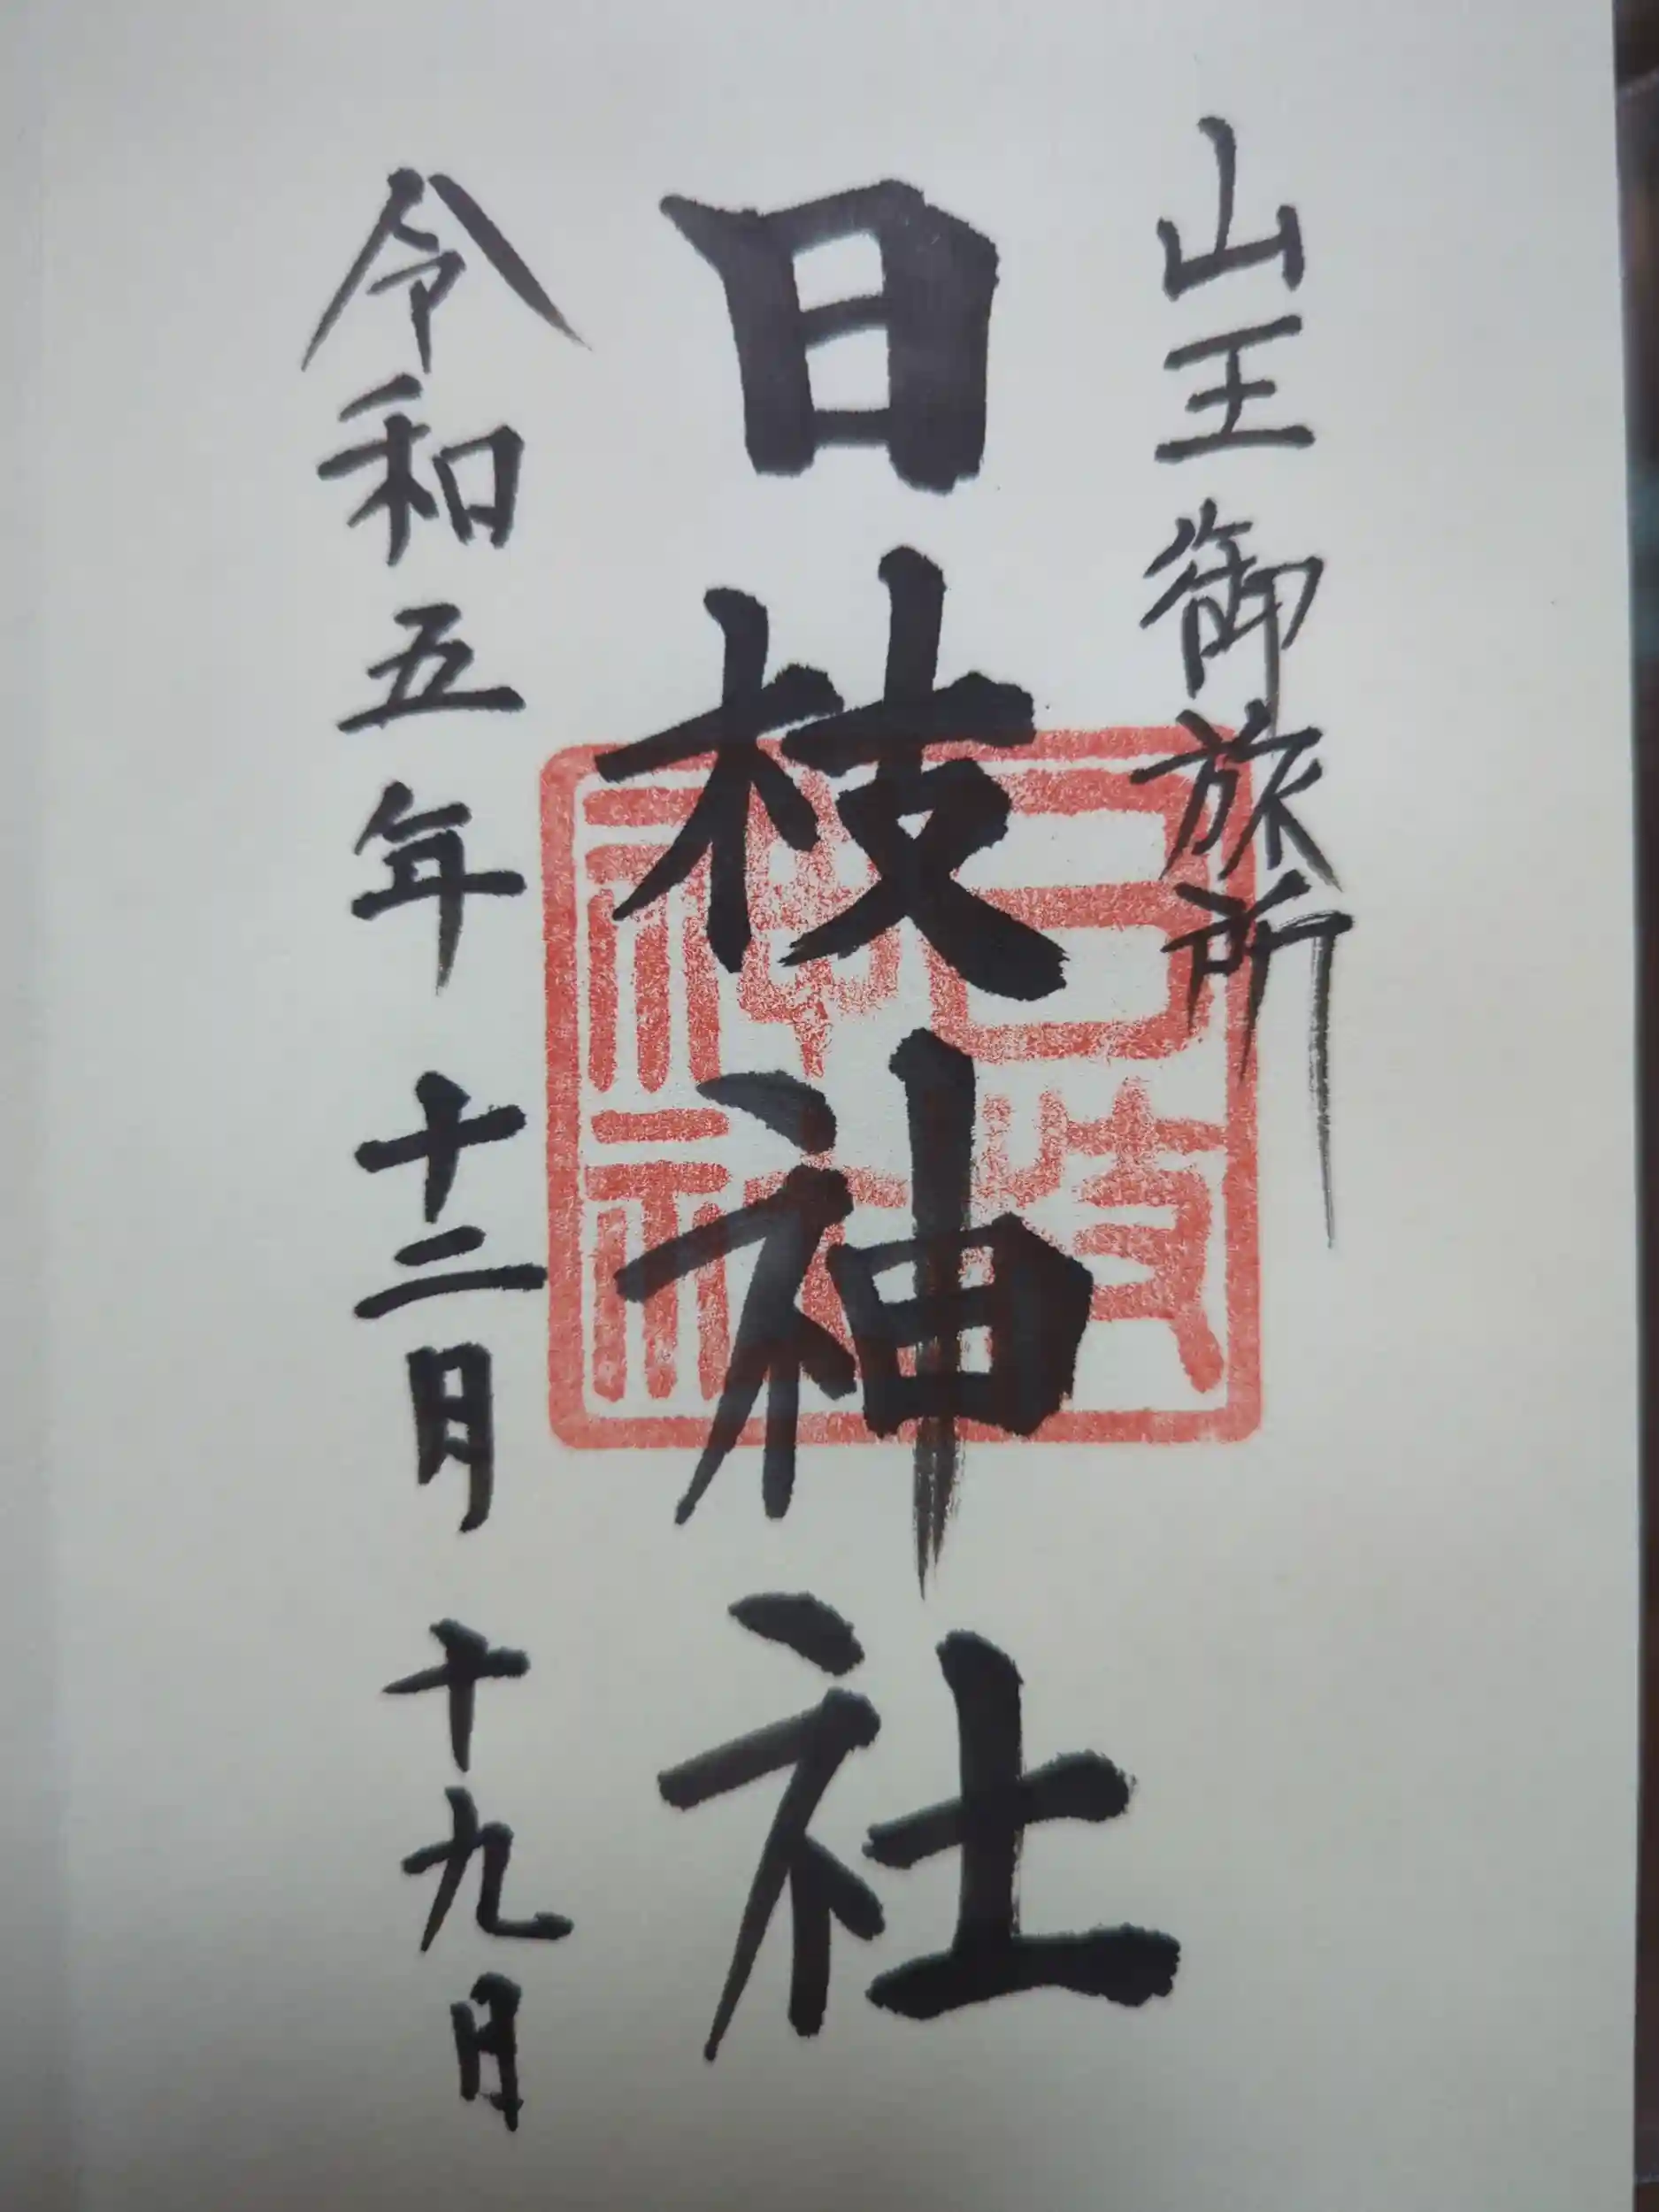 山王御旅所
日枝神社
令和五年十二月十九日
日枝
神社